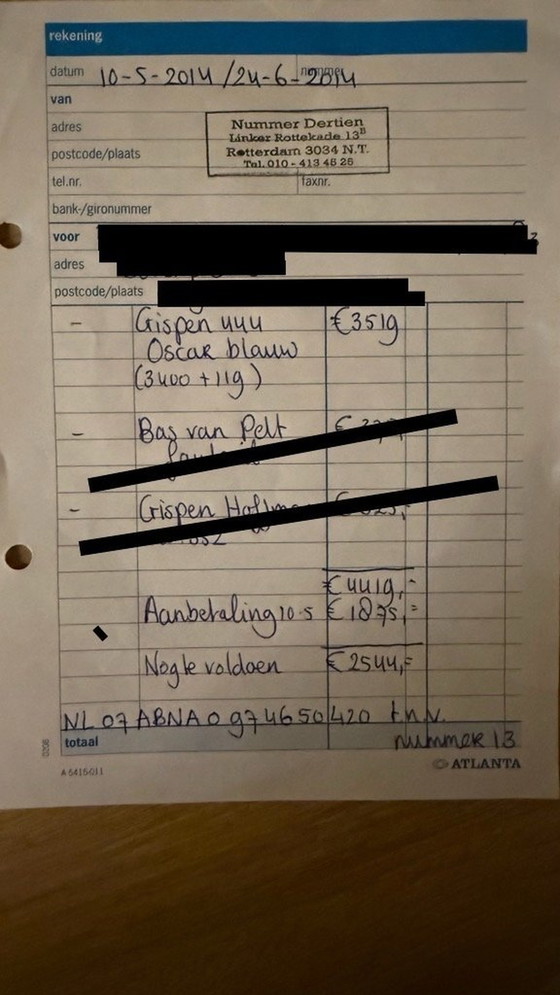 rekening
datum 10-5-2014 / 24-6-2014 nummer
van
Nummer Dertien
adres
Linker Rottekade 13B
postcode/plaats
Rotterdam 3034 N.T.
Tel. 010 - 413 46 26
tel.nr. faxnr.
bank-/gironummer
voor
adres
postcode/plaats
- Gispen 444 €3519
Oscar blauw
(3400 + 119)
- Bas van Pelt €
- Gispen
€4419,-
Aanbetaling 10-5 €1875,=
Nog te voldoen €2544,=
NL 07 ABNA 0 974650420 t.n.v.
totaal nummer 13
0208
A 6415-011
ATLANTA